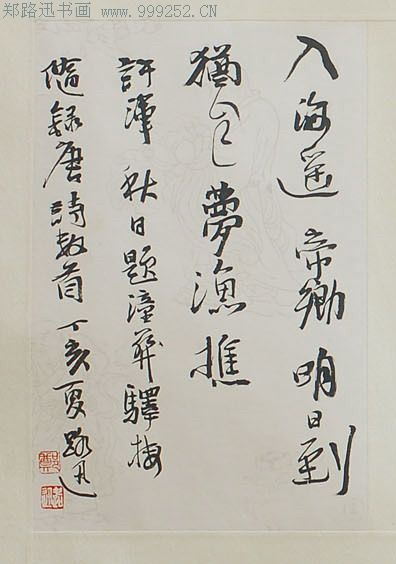 郑路迅书画 www.999252.CN
入海遥帝鄉明日到
猶自夢漁樵
許渾 秋日題潼關驛樓
隨録唐詩數首 丁亥夏 路迅